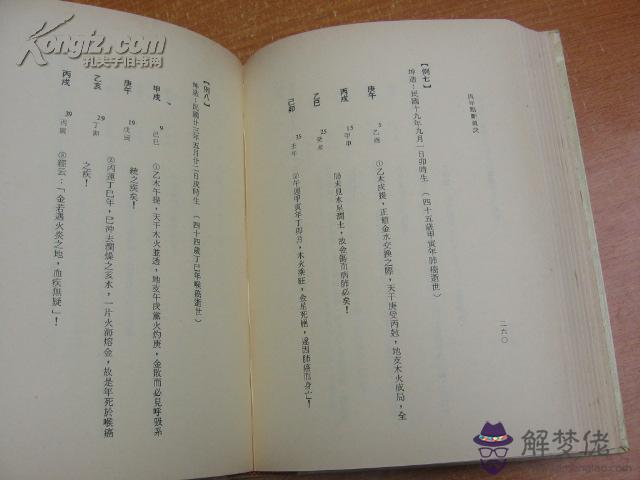 Kongfz.com
孔夫子旧书网
四年點斷訣訣
二六〇
【例七】
坤造：民國十九年九月一日卯時生 （四十五歲甲寅年肺癌逝世）
庚午 5乙酉
丙戌 15甲申
乙巳 25癸未
己卯 35壬午
①乙木戌提，正值金水交換之際，天干庚受丙尅，地支木火成局，全
局未見水星潤土，故金傷而病肺必矣！
②午運甲寅年丁卯月，木火乘旺，金星死絕，遂因肺癌而身亡！
【例八】
坤造：民國廿三年五月廿二日戌時生 （四十四歲丁巳年喉癌逝世）
甲戌 9己巳
庚午 19戊辰
乙亥 29丁卯
丙戌 39丙寅
①乙木午提，天干木火並透，地支午戌黨火灼庚，金敗而必見呼吸系
統之疾矣！
②丙運丁巳年，巳沖去潤燥之亥水，一片火海熔金，故是年死於喉癌
之疾！
③經云：「金若遇火炎之地，血疾無疑」！
解梦佬